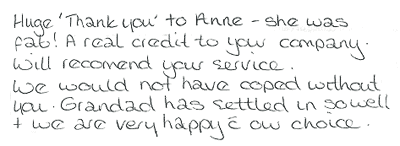 Huge 'Thank you' to Anne - she was
fab! A real credit to your company.
Will recomend your service.
We would not have coped without
you. Grandad has settled in so well
+ we are very happy c̄ our choice.